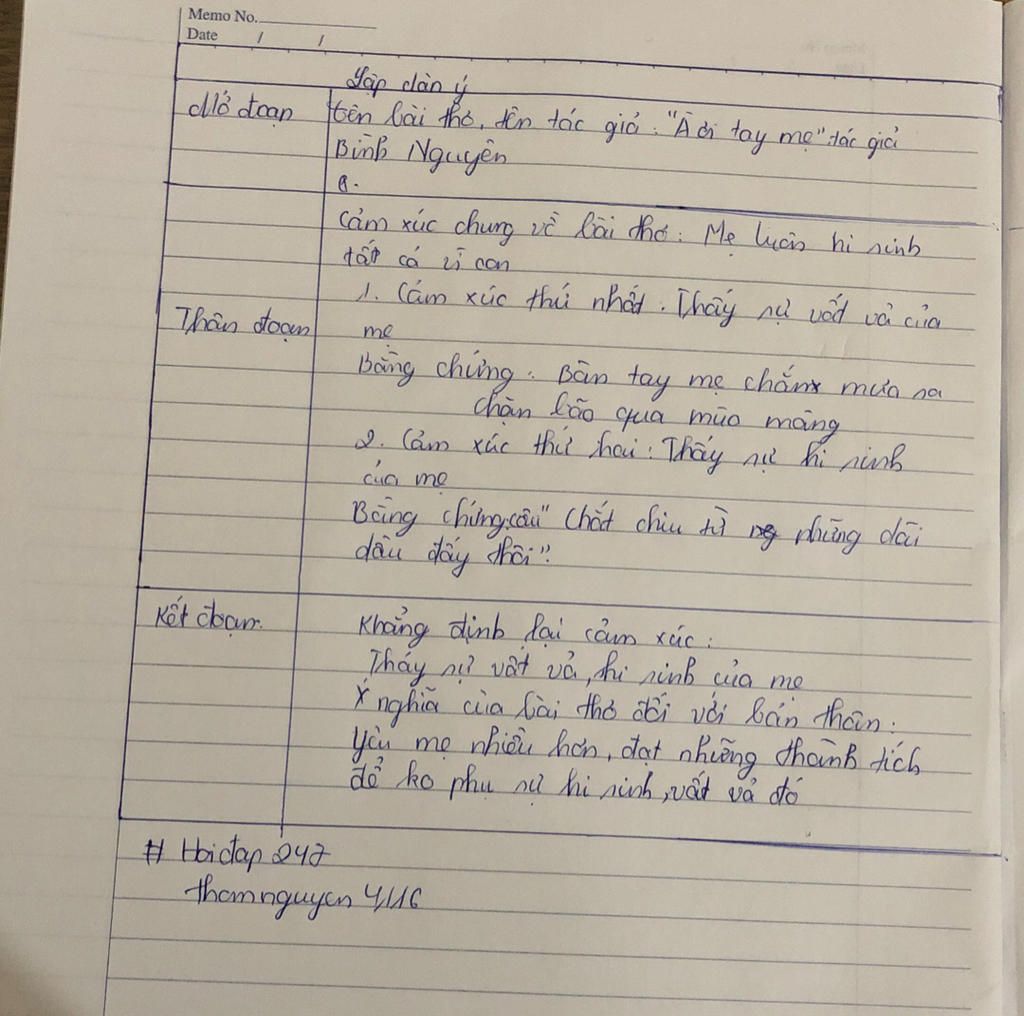 Memo No.
Date / /
Lập dàn ý
Mở đoạn
tên bài thơ, tên tác giả: "À ơi tay mẹ" tác giả
Bình Nguyên
Cảm xúc chung về bài thơ: Mẹ luôn hi sinh
tất cả vì con
Thân đoạn
1. Cảm xúc thứ nhất. Thấy sự vất vả của
mẹ
Bằng chứng: Bàn tay mẹ chắn mưa sa
chặn bão qua mùa màng
2. Cảm xúc thứ hai: Thấy sự hi sinh
của mẹ
Bằng chứng: câu "Chắt chiu từ những dãi
dầu đấy thôi".
Kết đoạn
Khẳng định lại cảm xúc:
Thấy sự vất vả, hi sinh của mẹ
Ý nghĩa của bài thơ đối với bản thân:
Yêu mẹ nhiều hơn, đạt những thành tích
để ko phụ sự hi sinh, vất vả đó
# Hoidap 247